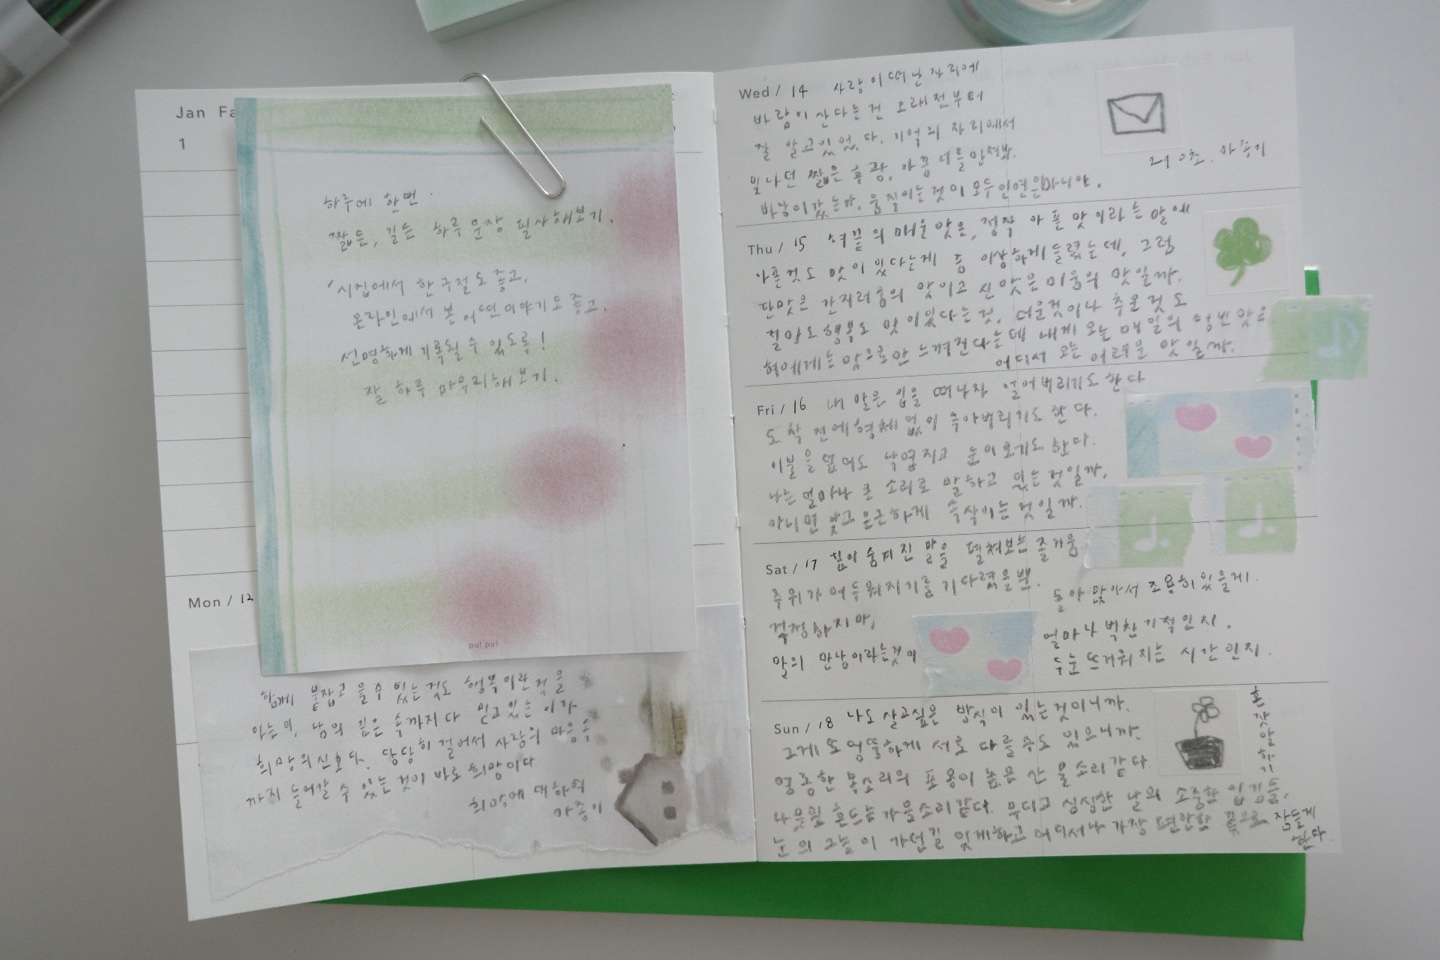 Jan
1
하루에 한번
짧든, 길든 하루 문장 필사해보기.
시집에서 한 구절도 좋고,
온라인에서 본 어떤 이야기도 좋고,
선명하게 기록될 수 있도록!
잘 하루 마무리해보기.
pui pui
Mon / 12
함께 붙잡고 울 수 있는 것도 행복이란 걸
아는 이, 남의 깊은 속까지 다 믿고 있는 이가
희망의 신호다. 당당히 걸어서 사람의 마음속
까지 들어갈 수 있는 것이 바로 희망이다
희망에 대하여
Wed / 14 사랑이 떠난 자리에
바람이 산다는 건 오래전부터
잘 알고 있었다. 기억의 자리에서
빛나던 짧은 후광, 아픔
바람이 움직이는 것이 모두 인연은 아니야.
Thu / 15 혀끝의 매운맛은, 정작 아픈 맛이라는 말에
아픈것도 맛이 있다는게 좀 이상하게 들렸는데, 그럼
단맛은 간지러움의 맛이고 신맛은 미움의 맛일까.
절망도 행복도 맛이 있다는 것, 더운것이나 추운 것도
혀에게는 맛으로만 느껴진다는데 내게 오는 매일의
어디서 오는 어려운 맛일까.
Fri / 16 내 말은 입을 떠나자 얼어버리기도 한다
도착 전에 형체 없이 녹아버리기도 한다.
이불을 덮어도 낙엽지고 눈이 오기도 한다.
나는 얼마나 큰 소리로 말하고 있는 것일까,
아니면 낮고 은근하게 속삭이는 것일까.
Sat / 17 깊이 숨겨진 말을 펼쳐보는 즐거움
주위가 어두워지기를 기다렸을뿐.
걱정하지마,
말의 만남이라는것이
돌아 앉아서 조용히 있을게.
얼마나 벅찬 기적인지.
두눈 뜨거워지는 시간인지.
Sun / 18 나도 살고싶은 방식이 있는것이니까.
그게 또 엉뚱하게 서로 다를 수도 있으니까.
엉큼한 목소리의 포옹이 높은 산 울소리 같다.
나뭇잎 흔드는 가을소리 같다. 무디고 심심한 날의 소중한 입김들,
눈의 그늘이 가던길 잊게하고 어디서나 가장 편안한 꽃으로 잠들게
한다.
혼잣말하기